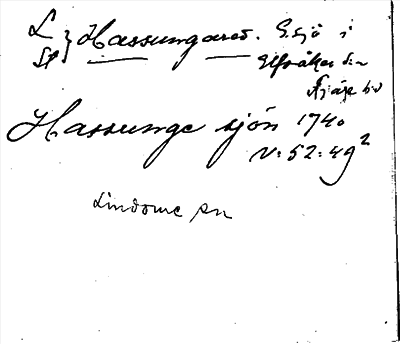 L
St } Hassungared. G. sjö i
Elfsåkers sn
Fjäre hd
Hassunge sjön 1740
V: 52: 49²
Lindome sn